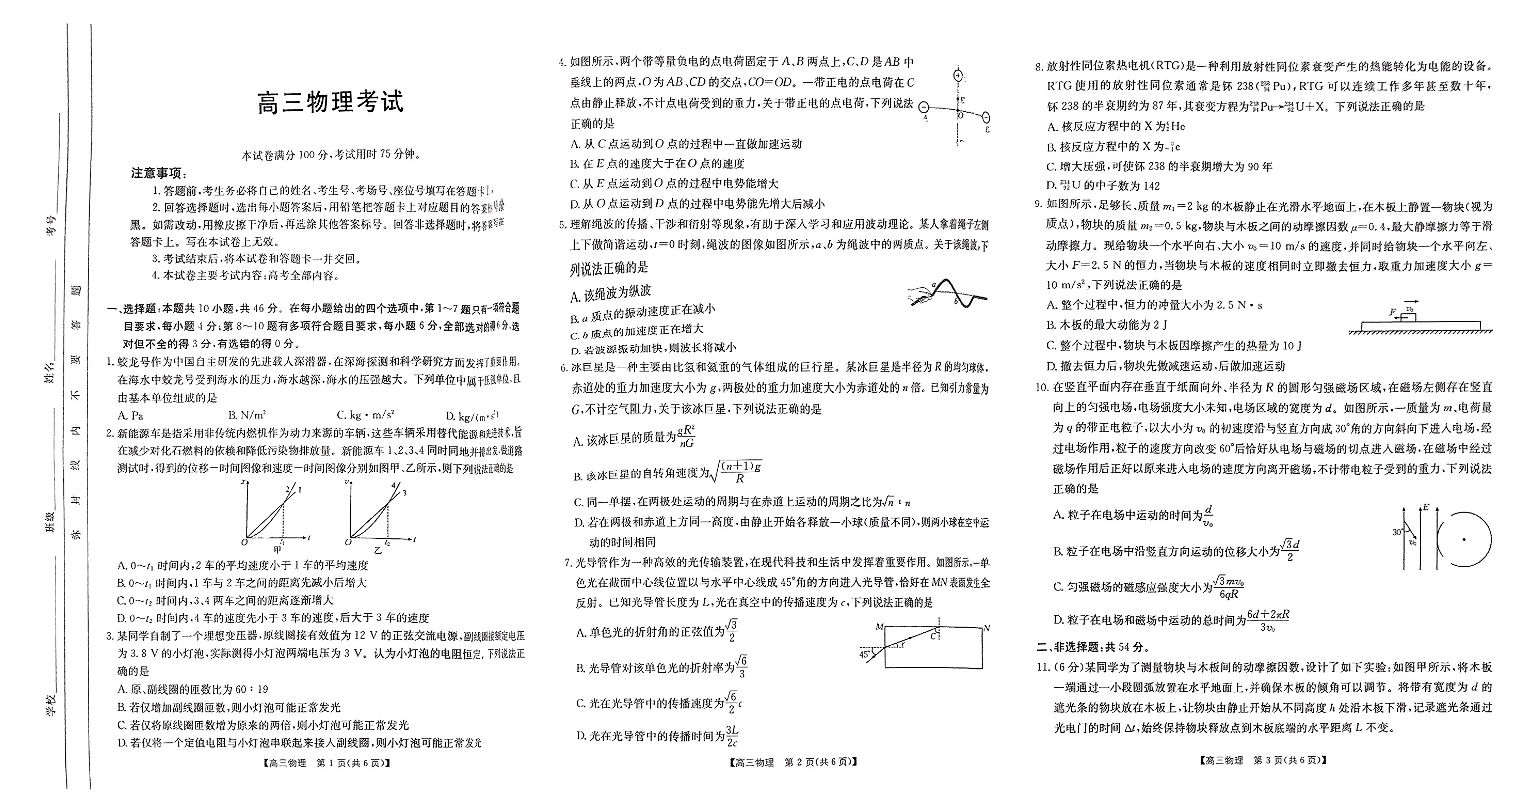 高三物理考试
本试卷满分100分,考试用时75分钟。
注意事项:
1.答题前,考生务必将自己的姓名、考生号、考场号、座位号填写在答题卡上。
2.回答选择题时,选出每小题答案后,用铅笔把答题卡上对应题目的答案标号涂
黑。如需改动,用橡皮擦干净后,再选涂其他答案标号。回答非选择题时,将答案写在
答题卡上。写在本试卷上无效。
3.考试结束后,将本试卷和答题卡一并交回。
4.本试卷主要考试内容:高考全部内容。
一、选择题:本题共10小题,共46分。在每小题给出的四个选项中,第1~7题只有一项符合题
目要求,每小题4分;第8~10题有多项符合题目要求,每小题6分,全部选对的得6分,选
对但不全的得3分,有选错的得0分。
1.蛟龙号作为中国自主研发的先进载人深潜器,在深海探测和科学研究方面发挥了重要作用。
在海水中蛟龙号受到海水的压力,海水越深,海水的压强越大。下列单位中属于压强单位、且
由基本单位组成的是
A. Pa B. N/m² C. kg·m/s² D. kg/(m·s²)
2.新能源车是指采用非传统内燃机作为动力来源的车辆,这些车辆采用替代能源和先进技术,旨
在减少对化石燃料的依赖和降低污染物排放量。新能源车1、2、3、4同时同地并排出发,做道路
测试时,得到的位移-时间图像和速度-时间图像分别如图甲、乙所示,则下列说法正确的是
x 2 1 O t₁ t 甲
v 4 3 O t₂ t 乙
A. 0~t₁时间内,2车的平均速度小于1车的平均速度
B. 0~t₁时间内,1车与2车之间的距离先减小后增大
C. 0~t₂时间内,3、4两车之间的距离逐渐增大
D. 0~t₂时间内,4车的速度先小于3车的速度,后大于3车的速度
3.某同学自制了一个理想变压器,原线圈接有效值为12 V的正弦交流电源,副线圈接额定电压
为3.8 V的小灯泡,实际测得小灯泡两端电压为3 V。认为小灯泡的电阻恒定,下列说法正
确的是
A.原、副线圈的匝数比为60∶19
B.若仅增加副线圈匝数,则小灯泡可能正常发光
C.若仅将原线圈匝数增为原来的两倍,则小灯泡可能正常发光
D.若仅将一个定值电阻与小灯泡串联起来接入副线圈,则小灯泡可能正常发光
【高三物理 第1页(共6页)】
学校
班级
姓名
考号
密 封 线 内 不 要 答 题
4.如图所示,两个带等量负电的点电荷固定于A、B两点上,C、D是AB中
垂线上的两点,O为AB、CD的交点,CO=OD。一带正电的点电荷在C
点由静止释放,不计点电荷受到的重力,关于带正电的点电荷,下列说法
正确的是
A.从C点运动到O点的过程中一直做加速运动
B.在E点的速度大于在O点的速度
C.从E点运动到O点的过程中电势能增大
D.从O点运动到D点的过程中电势能先增大后减小
5.理解绳波的传播、干涉和衍射等现象,有助于深入学习和应用波动理论。某人拿着绳子左侧
上下做简谐运动,t=0时刻,绳波的图像如图所示,a、b为绳波中的两质点。关于该绳波,下
列说法正确的是
A.该绳波为纵波
B. a质点的振动速度正在减小
C. b质点的加速度正在增大
D.若波源振动加快,则波长将减小
a
b
6.冰巨星是一种主要由比氢和氦重的气体组成的巨行星。某冰巨星是半径为R的均匀球体,
赤道处的重力加速度大小为g,两极处的重力加速度大小为赤道处的n倍。已知引力常量为
G,不计空气阻力,关于该冰巨星,下列说法正确的是
A.该冰巨星的质量为gR²/nG
B.该冰巨星的自转角速度为√((n+1)g/R)
C.同一单摆,在两极处运动的周期与在赤道上运动的周期之比为√n∶n
D.若在两极和赤道上方同一高度,由静止开始各释放一小球(质量不同),则两小球在空中运
动的时间相同
7.光导管作为一种高效的光传输装置,在现代科技和生活中发挥着重要作用。如图所示,一单
色光在截面中心线位置以与水平中心线成45°角的方向进入光导管,恰好在MN表面发生全
反射。已知光导管长度为L,光在真空中的传播速度为c,下列说法正确的是
A.单色光的折射角的正弦值为√3/2
B.光导管对该单色光的折射率为√6/3
C.光在光导管中的传播速度为√6/2 c
D.光在光导管中的传播时间为3L/2c
M C N
45° r
【高三物理 第2页(共6页)】
8.放射性同位素热电机(RTG)是一种利用放射性同位素衰变产生的热能转化为电能的设备。
RTG使用的放射性同位素通常是钚238(²³⁸₉₄Pu),RTG可以连续工作多年甚至数十年,
钚238的半衰期约为87年,其衰变方程为²³⁸₉₄Pu→²³⁴₉₂U+X。下列说法正确的是
A.核反应方程中的X为⁴₂He
B.核反应方程中的X为⁰₋₁e
C.增大压强,可使钚238的半衰期增大为90年
D. ²³⁴₉₂U的中子数为142
9.如图所示,足够长、质量m₁=2 kg的木板静止在光滑水平地面上,在木板上静置一物块(视为
质点),物块的质量m₂=0.5 kg,物块与木板之间的动摩擦因数μ=0.4,最大静摩擦力等于滑
动摩擦力。现给物块一个水平向右、大小v₀=10 m/s的速度,并同时给物块一个水平向左、
大小F=2.5 N的恒力,当物块与木板的速度相同时立即撤去恒力,取重力加速度大小g=
10 m/s²,下列说法正确的是
A.整个过程中,恒力的冲量大小为2.5 N·s
B.木板的最大动能为2 J
C.整个过程中,物块与木板因摩擦产生的热量为10 J
D.撤去恒力后,物块先做减速运动,后做加速运动
F v₀
10.在竖直平面内存在垂直于纸面向外、半径为R的圆形匀强磁场区域,在磁场左侧存在竖直
向上的匀强电场,电场强度大小未知,电场区域的宽度为d。如图所示,一质量为m、电荷量
为q的带正电粒子,以大小为v₀的初速度沿与竖直方向成30°角的方向斜向下进入电场,经
过电场作用后,粒子的速度方向改变60°后恰好从电场与磁场的切点进入磁场,在磁场中经过
磁场作用后正好以原来进入电场的速度方向离开磁场,不计带电粒子受到的重力,下列说法
正确的是
A.粒子在电场中运动的时间为d/v₀
B.粒子在电场中沿竖直方向运动的位移大小为√3d/2
C.匀强磁场的磁感应强度大小为√3mv₀/6qR
D.粒子在电场和磁场中运动的总时间为(6d+2πR)/3v₀
30° v₀ E
二、非选择题:共54分。
11.(6分)某同学为了测量物块与木板间的动摩擦因数,设计了如下实验:如图甲所示,将木板
一端通过一小段圆弧放置在水平地面上,并确保木板的倾角可以调节。将带有宽度为d的
遮光条的物块放在木板上,让物块由静止开始从不同高度h处沿木板下滑,记录遮光条通过
光电门的时间Δt,始终保持物块释放点到木板底端的水平距离L不变。
【高三物理 第3页(共6页)】